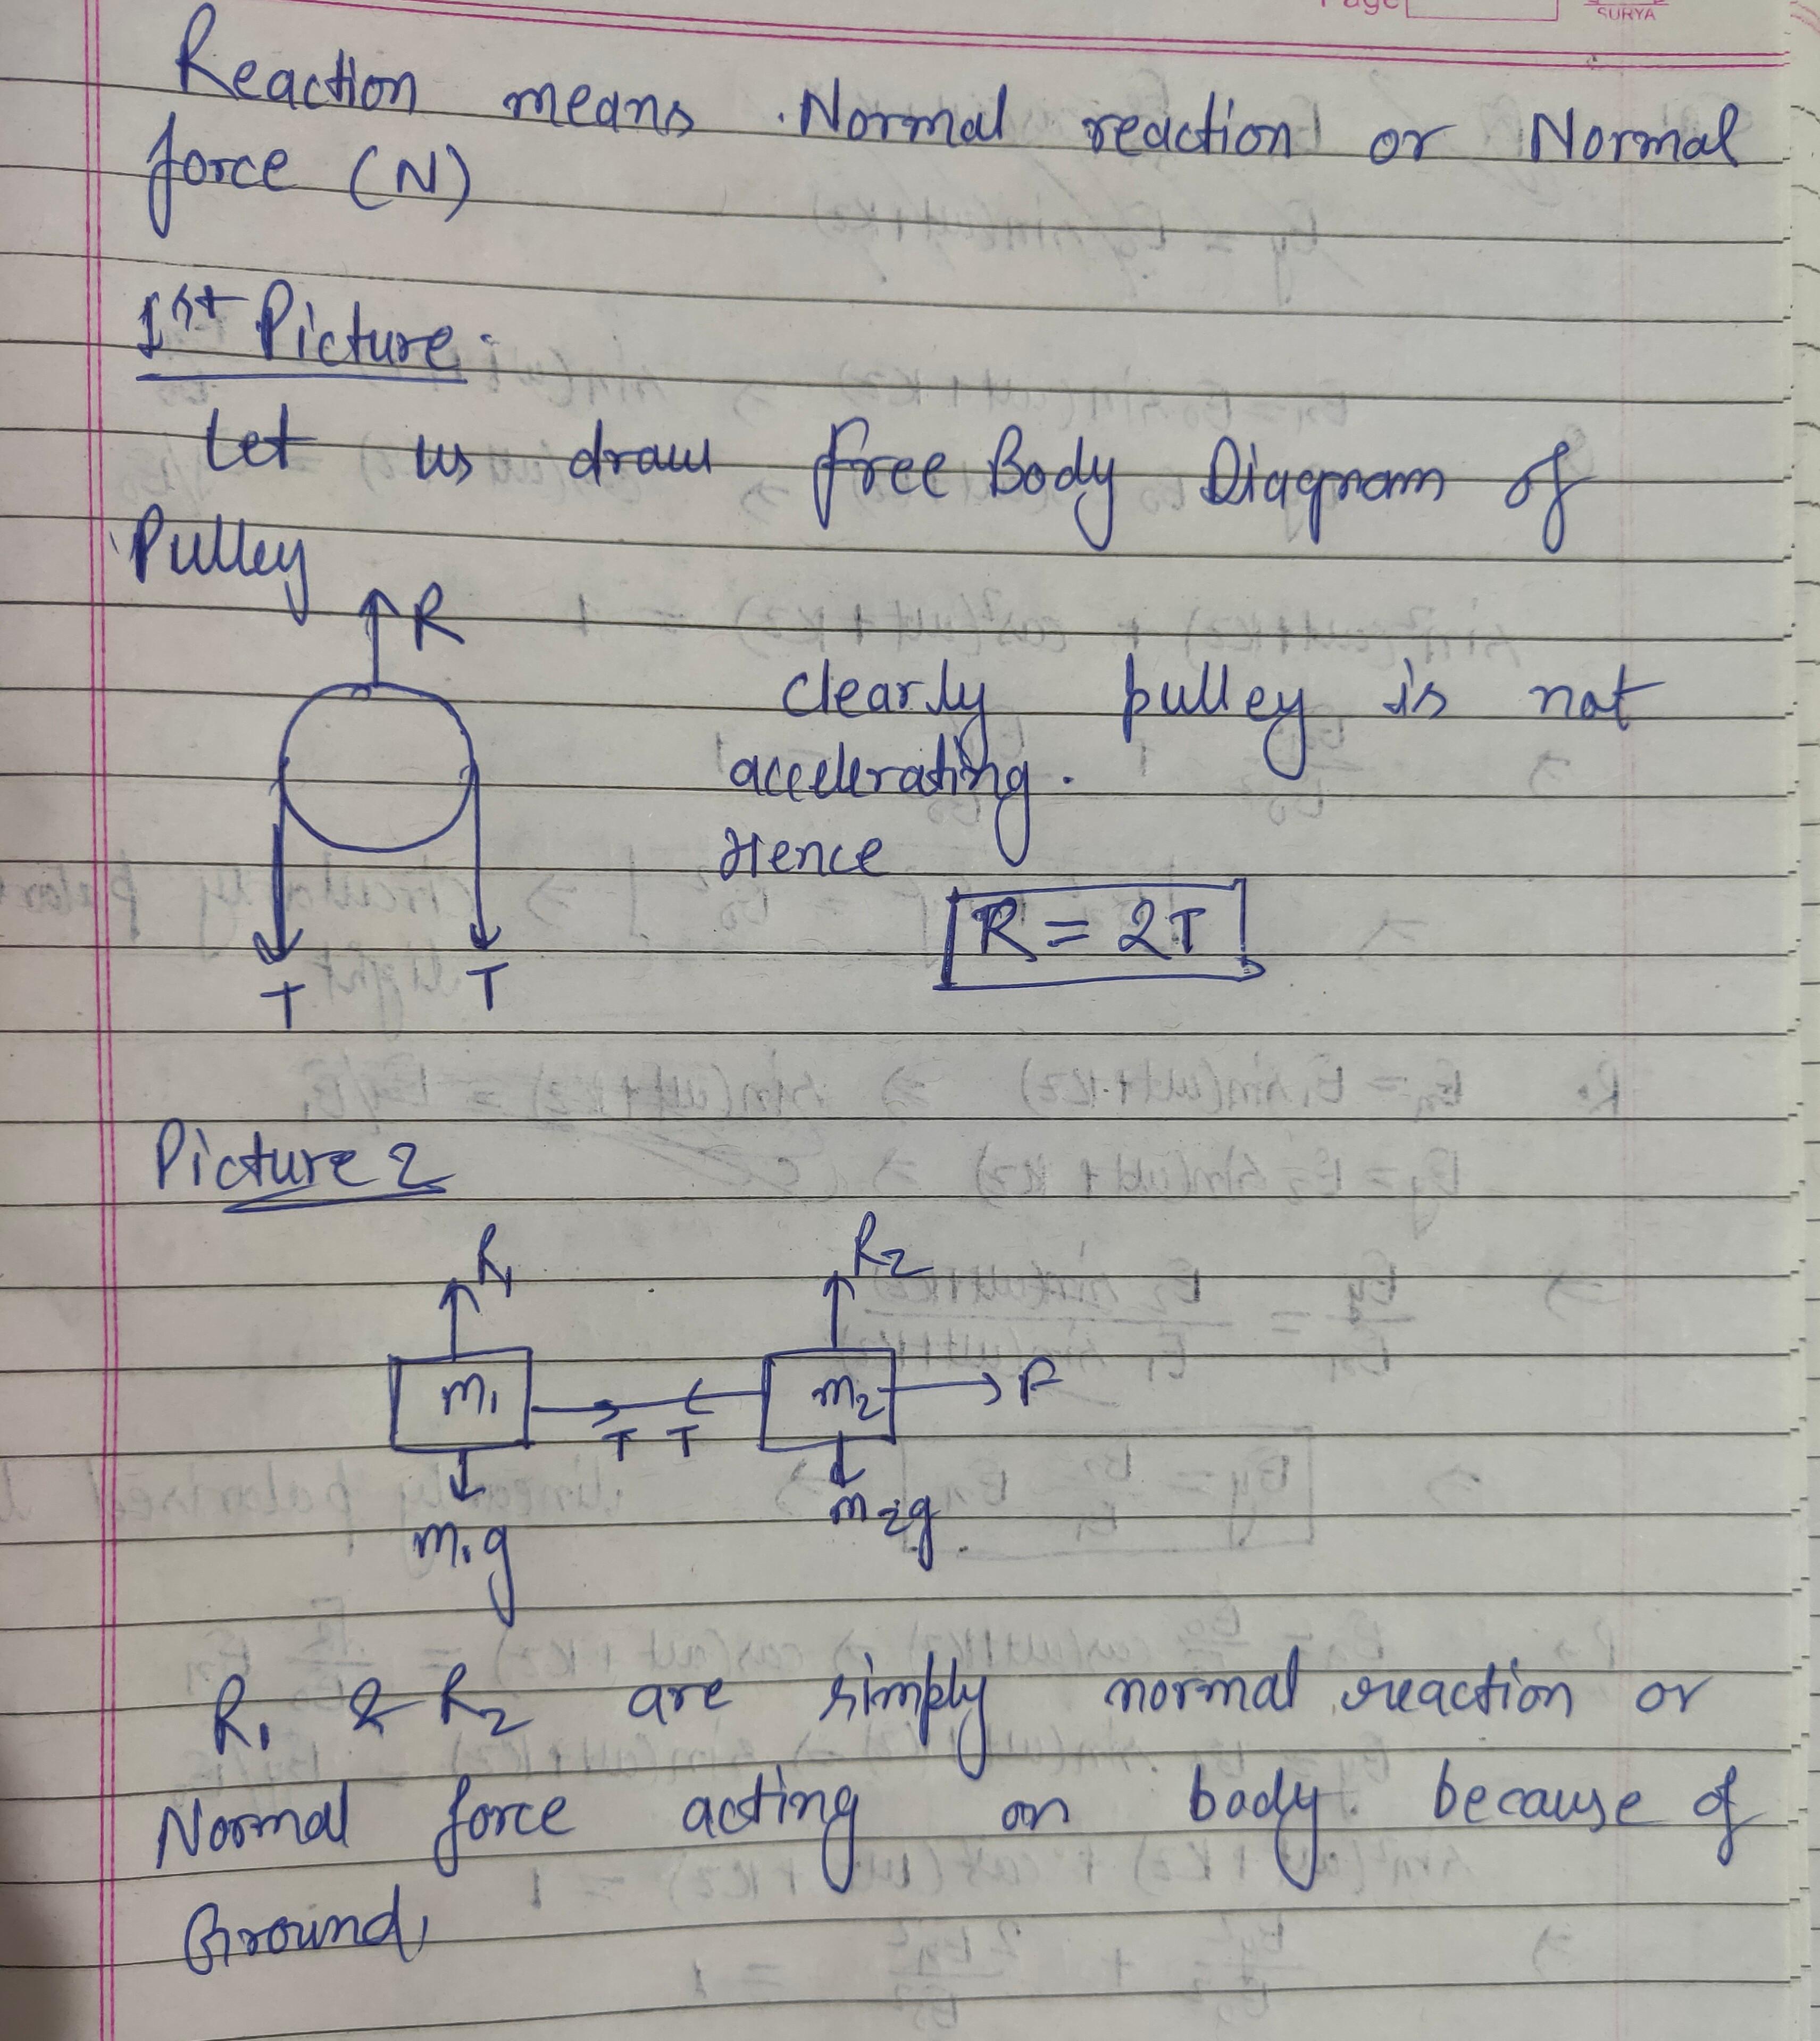 Page
SURYA
Reaction means Normal reaction or Normal
force (N)
1st Picture
Let us draw free Body Diagram of
Pulley
R
Clearly pulley is not
accelerating.
Hence
R = 2T
T T
Picture 2
R1 R2
m1 T T m2 F
m1g m2g
R1 & R2 are simply normal reaction or
Normal force acting on body because of
Ground